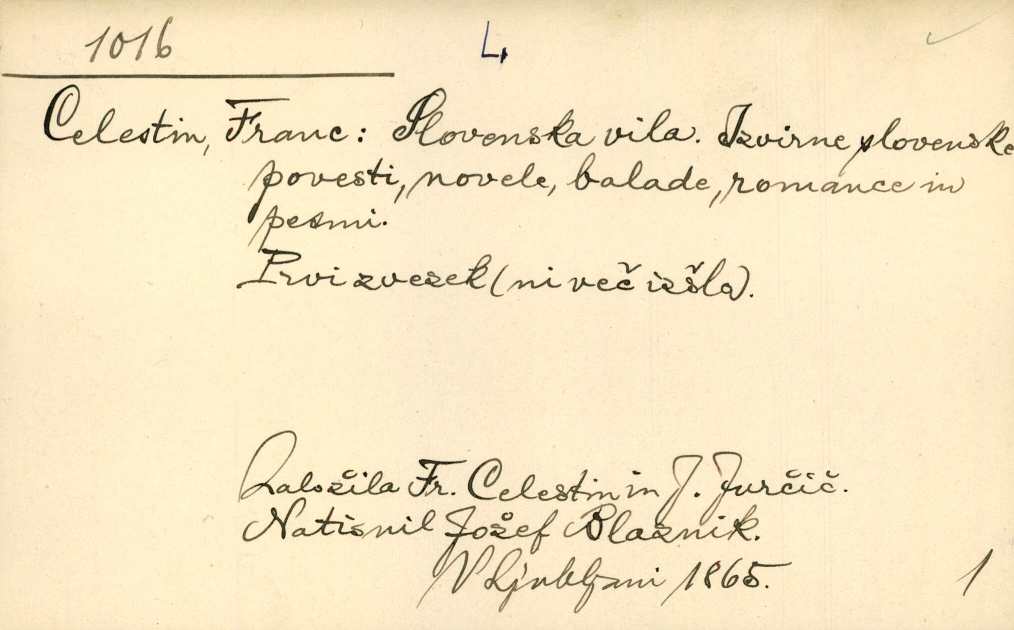 1016 L,
Celestin, Franc: Slovenska vila. Izvirne slovenske
povesti, novele, balade, romance in
pesmi.
Prvi zvezek (ni več izšla).
Založila Fr. Celestin in J. Jurčič.
Natisnil Jožef Blaznik.
V Ljubljani 1865.
1